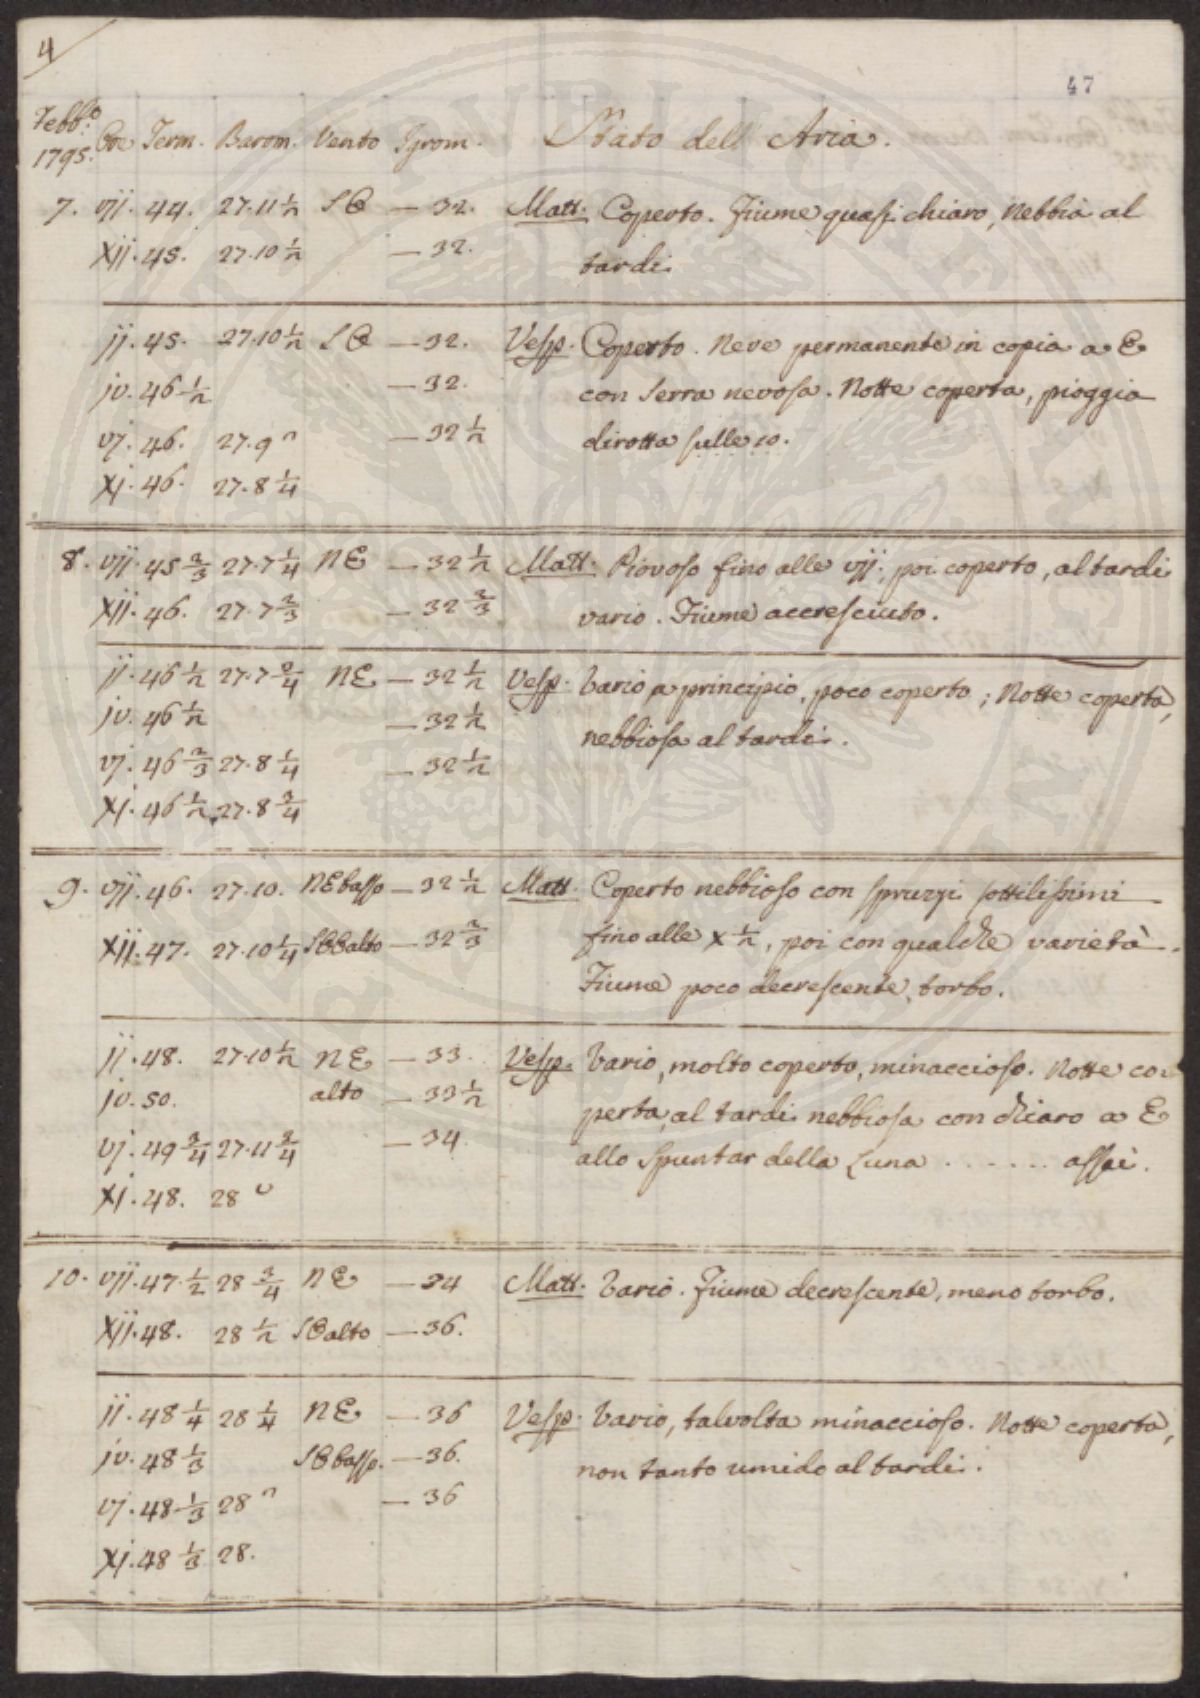 4
47
Febb.o 1795. Ore Term. Barom. Vento Igrom. Stato dell'Aria.
7. vij. 44. 27.11 1/2 SO — 32. Matt. Coperto. Fiume quasi chiaro, nebbia al
xij. 45. 27.10 1/2 — 32. tardi.
ij. 45. 27.10 1/2 SO — 32. Vesp. Coperto. Neve permanente in copia a E
iv. 46 1/2 — 32. con serra nevosa. Notte coperta, pioggia
vj. 46. 27.9 — 32 1/2 dirotta sulle 10.
xj. 46. 27.8 1/4
8. vij. 45 2/3 27.7 1/4 NE — 32 1/2 Matt. Piovoso fino alle vij; poi coperto, al tardi
xij. 46. 27.7 2/3 — 32 2/3 vario. Fiume accresciuto.
ij. 46 1/2 27.7 3/4 NE — 32 1/2 Vesp. Vario a principio, poco coperto; Notte coperta,
iv. 46 1/2 — 32 1/2 nebbiosa al tardi.
vj. 46 2/3 27.8 1/4 — 32 1/2
xj. 46 1/2 27.8 3/4
9. vij. 46. 27.10. NE basso — 32 1/2 Matt. Coperto nebbioso con spruzzi sottilissimi
xij. 47. 27.10 1/4 SO alto — 32 2/3 fino alle x 1/2, poi con qualche varietà.
Fiume poco decrescente, torbo.
ij. 48. 27.10 1/2 NE — 33. Vesp. Vario, molto coperto, minaccioso. Notte co-
iv. 50. alto — 33 1/2 perta, al tardi nebbiosa con chiaro a E
vj. 49 3/4 27.11 3/4 — 34. allo spuntar della Luna . . . . . . assai.
xj. 48. 28
10. vij. 47 1/2 28 3/4 NE — 34 Matt. Vario. Fiume decrescente, meno torbo.
xij. 48. 28 1/2 SO alto — 36.
ij. 48 1/4 28 1/4 NE — 36 Vesp. Vario, talvolta minaccioso. Notte coperta,
iv. 48 1/3 SO basso. — 36. non tanto umido al tardi.
vj. 48 1/3 28 — 36
xj. 48 1/3 28.